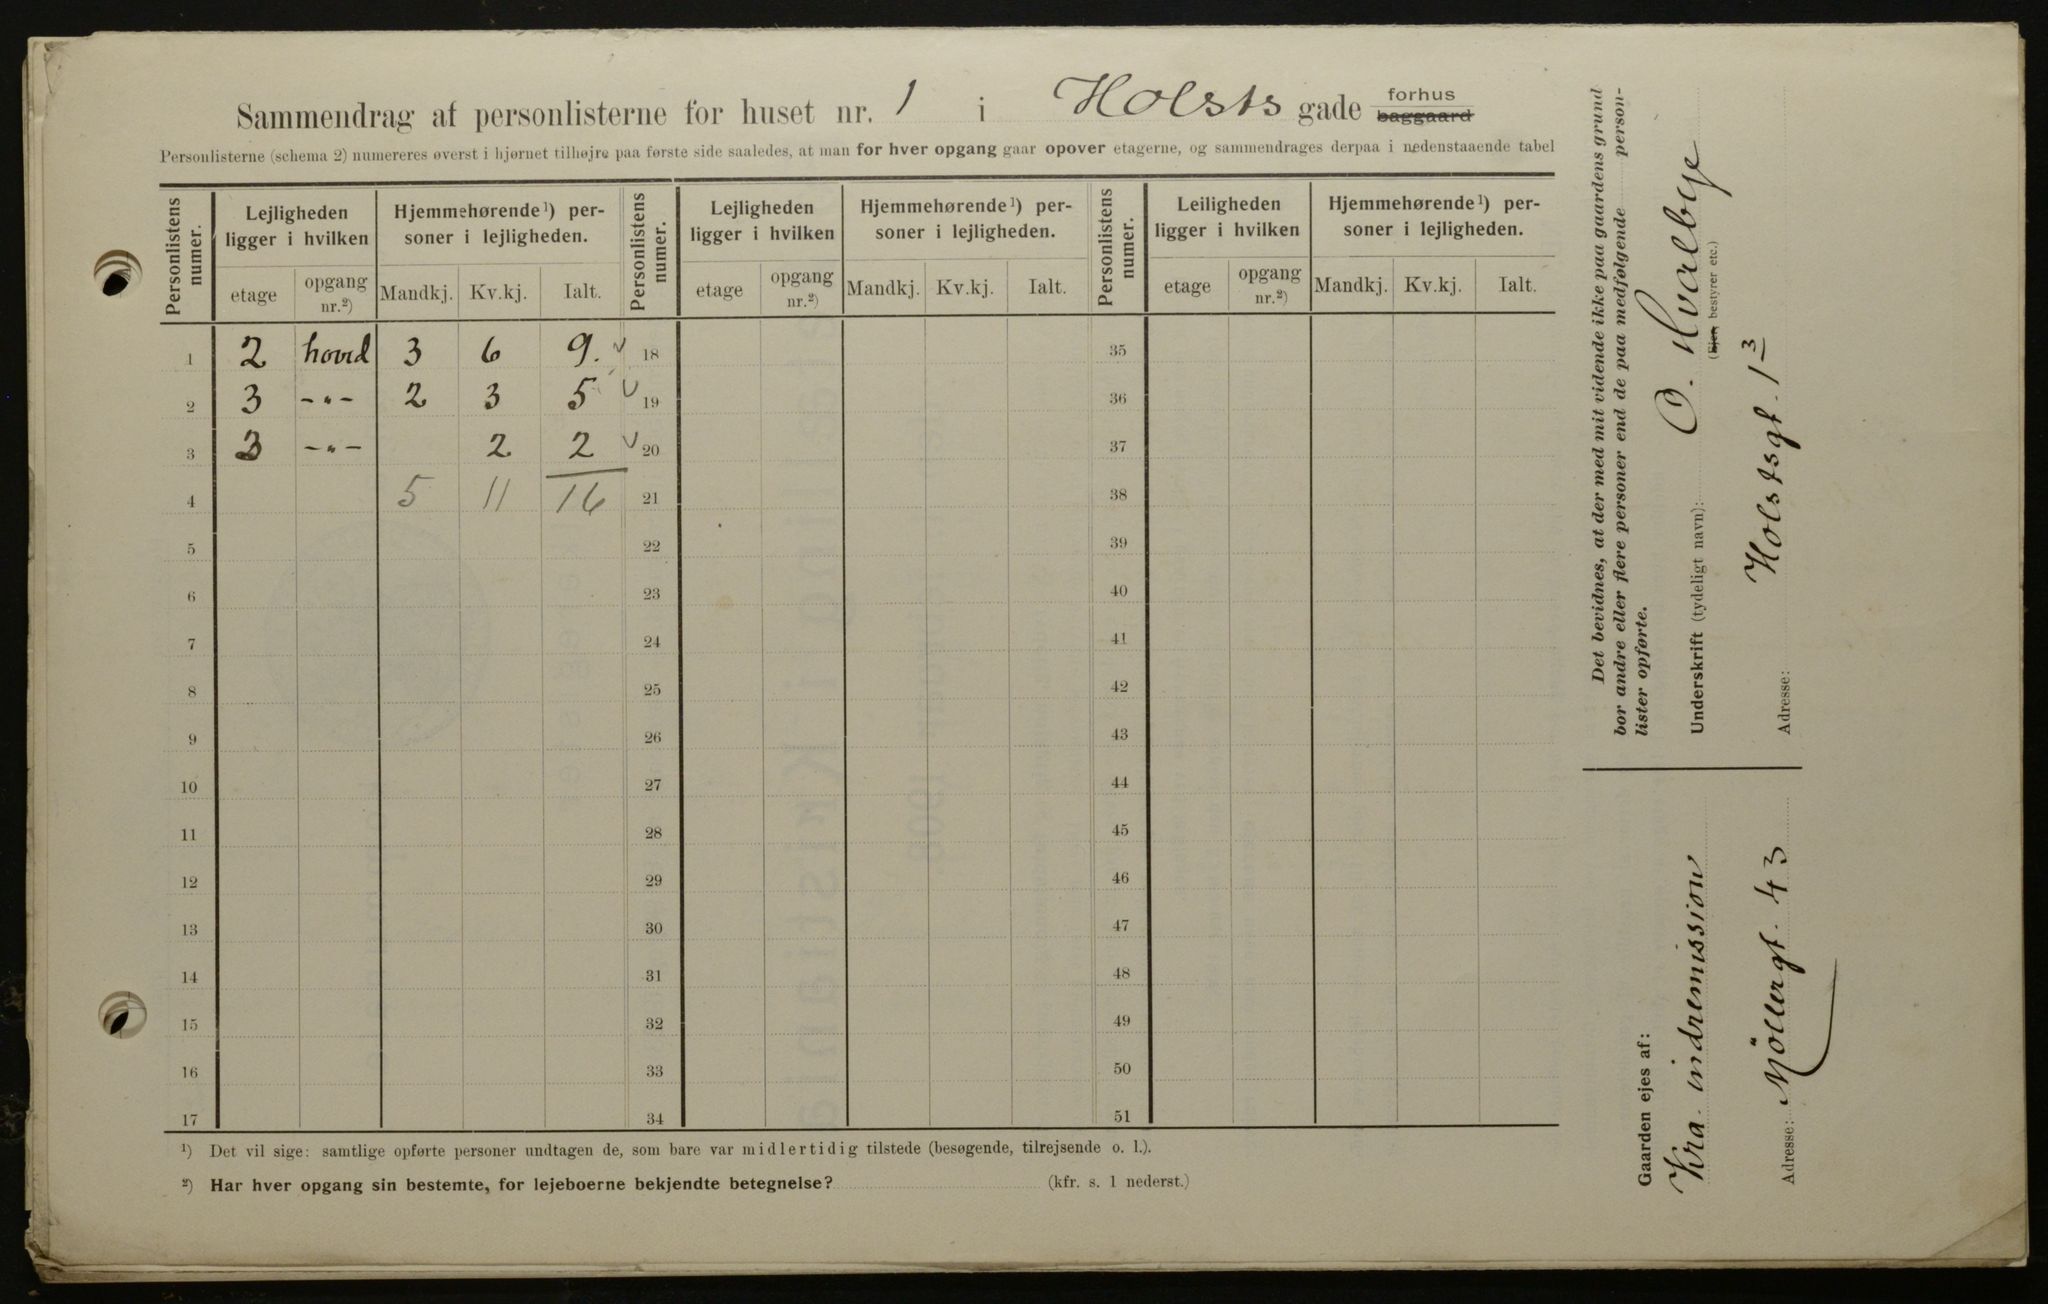 Sammendrag af personlisterne for huset nr. 1 i Holsts gade forhus baggaard
Personlisterne (schema 2) numereres øverst i hjørnet tilhøjre paa første side saaledes, at man for hver opgang gaar opover etagerne, og sammendrages derpaa i nedenstaaende tabel
Personlistens numer. Lejligheden ligger i hvilken Hjemmehørende¹) personer i lejligheden. Personlistens numer. Lejligheden ligger i hvilken Hjemmehørende¹) personer i lejligheden. Personlistens numer. Leiligheden ligger i hvilken Hjemmehørende¹) personer i lejligheden.
etage opgang nr.²) Mandkj. Kv.kj. Ialt. etage opgang nr.²) Mandkj. Kv.kj. Ialt. etage opgang nr.²) Mandkj. Kv.kj. Ialt.
1 2 hoved 3 6 9. 18 35
2 3 -"- 2 3 5 19 36
3 3 -"- 2 2 20 37
4 5 11 16 21 38
5 22 39
6 23 40
7 24 41
8 25 42
9 26 43
10 27 44
11 28 45
12 29 46
13 30 47
14 31 48
15 32 49
16 33 50
17 34 51
¹) Det vil sige: samtlige opførte personer undtagen de, som bare var midlertidig tilstede (besøgende, tilrejsende o. l.).
²) Har hver opgang sin bestemte, for lejeboerne bekjendte betegnelse? (kfr. s. 1 nederst.)
Det bevidnes, at der med mit vidende ikke paa gaardens grund
bor andre eller flere personer end de paa medfølgende person-
lister opførte.
Underskrift (tydeligt navn): O. Hvalbye
(Ejer, bestyrer etc.)
Adresse: Holstsgt. 1 3
Gaarden ejes af:
Kra indremission
Adresse: Möllergt. 43